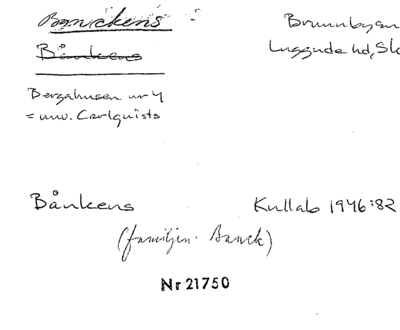 Banckens
Brunnbyan
Bånkens
Luggude hd, Sk
Bergahusen nr 4
= nuv. Carlquists
Bånkens Kullab 1946:82
(familjen Banck)
Nr 21750